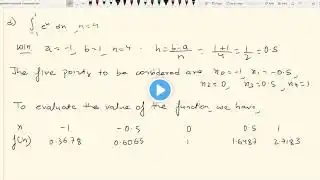 a) ∫₋₁¹ eˣ dx , n=4
Soln. a = -1, b = 1, n = 4 - h = b-a/n = 1+1/4 = 1/2 = 0.5
The five points to be considered are x₀ = -1, x₁ = -0.5,
x₂ = 0, x₃ = 0.5, x₄ = 1
To evaluate the value of the function, we have,
x -1 -0.5 0 0.5 1
f(x) 0.3678 0.6065 1 1.6487 2.7183